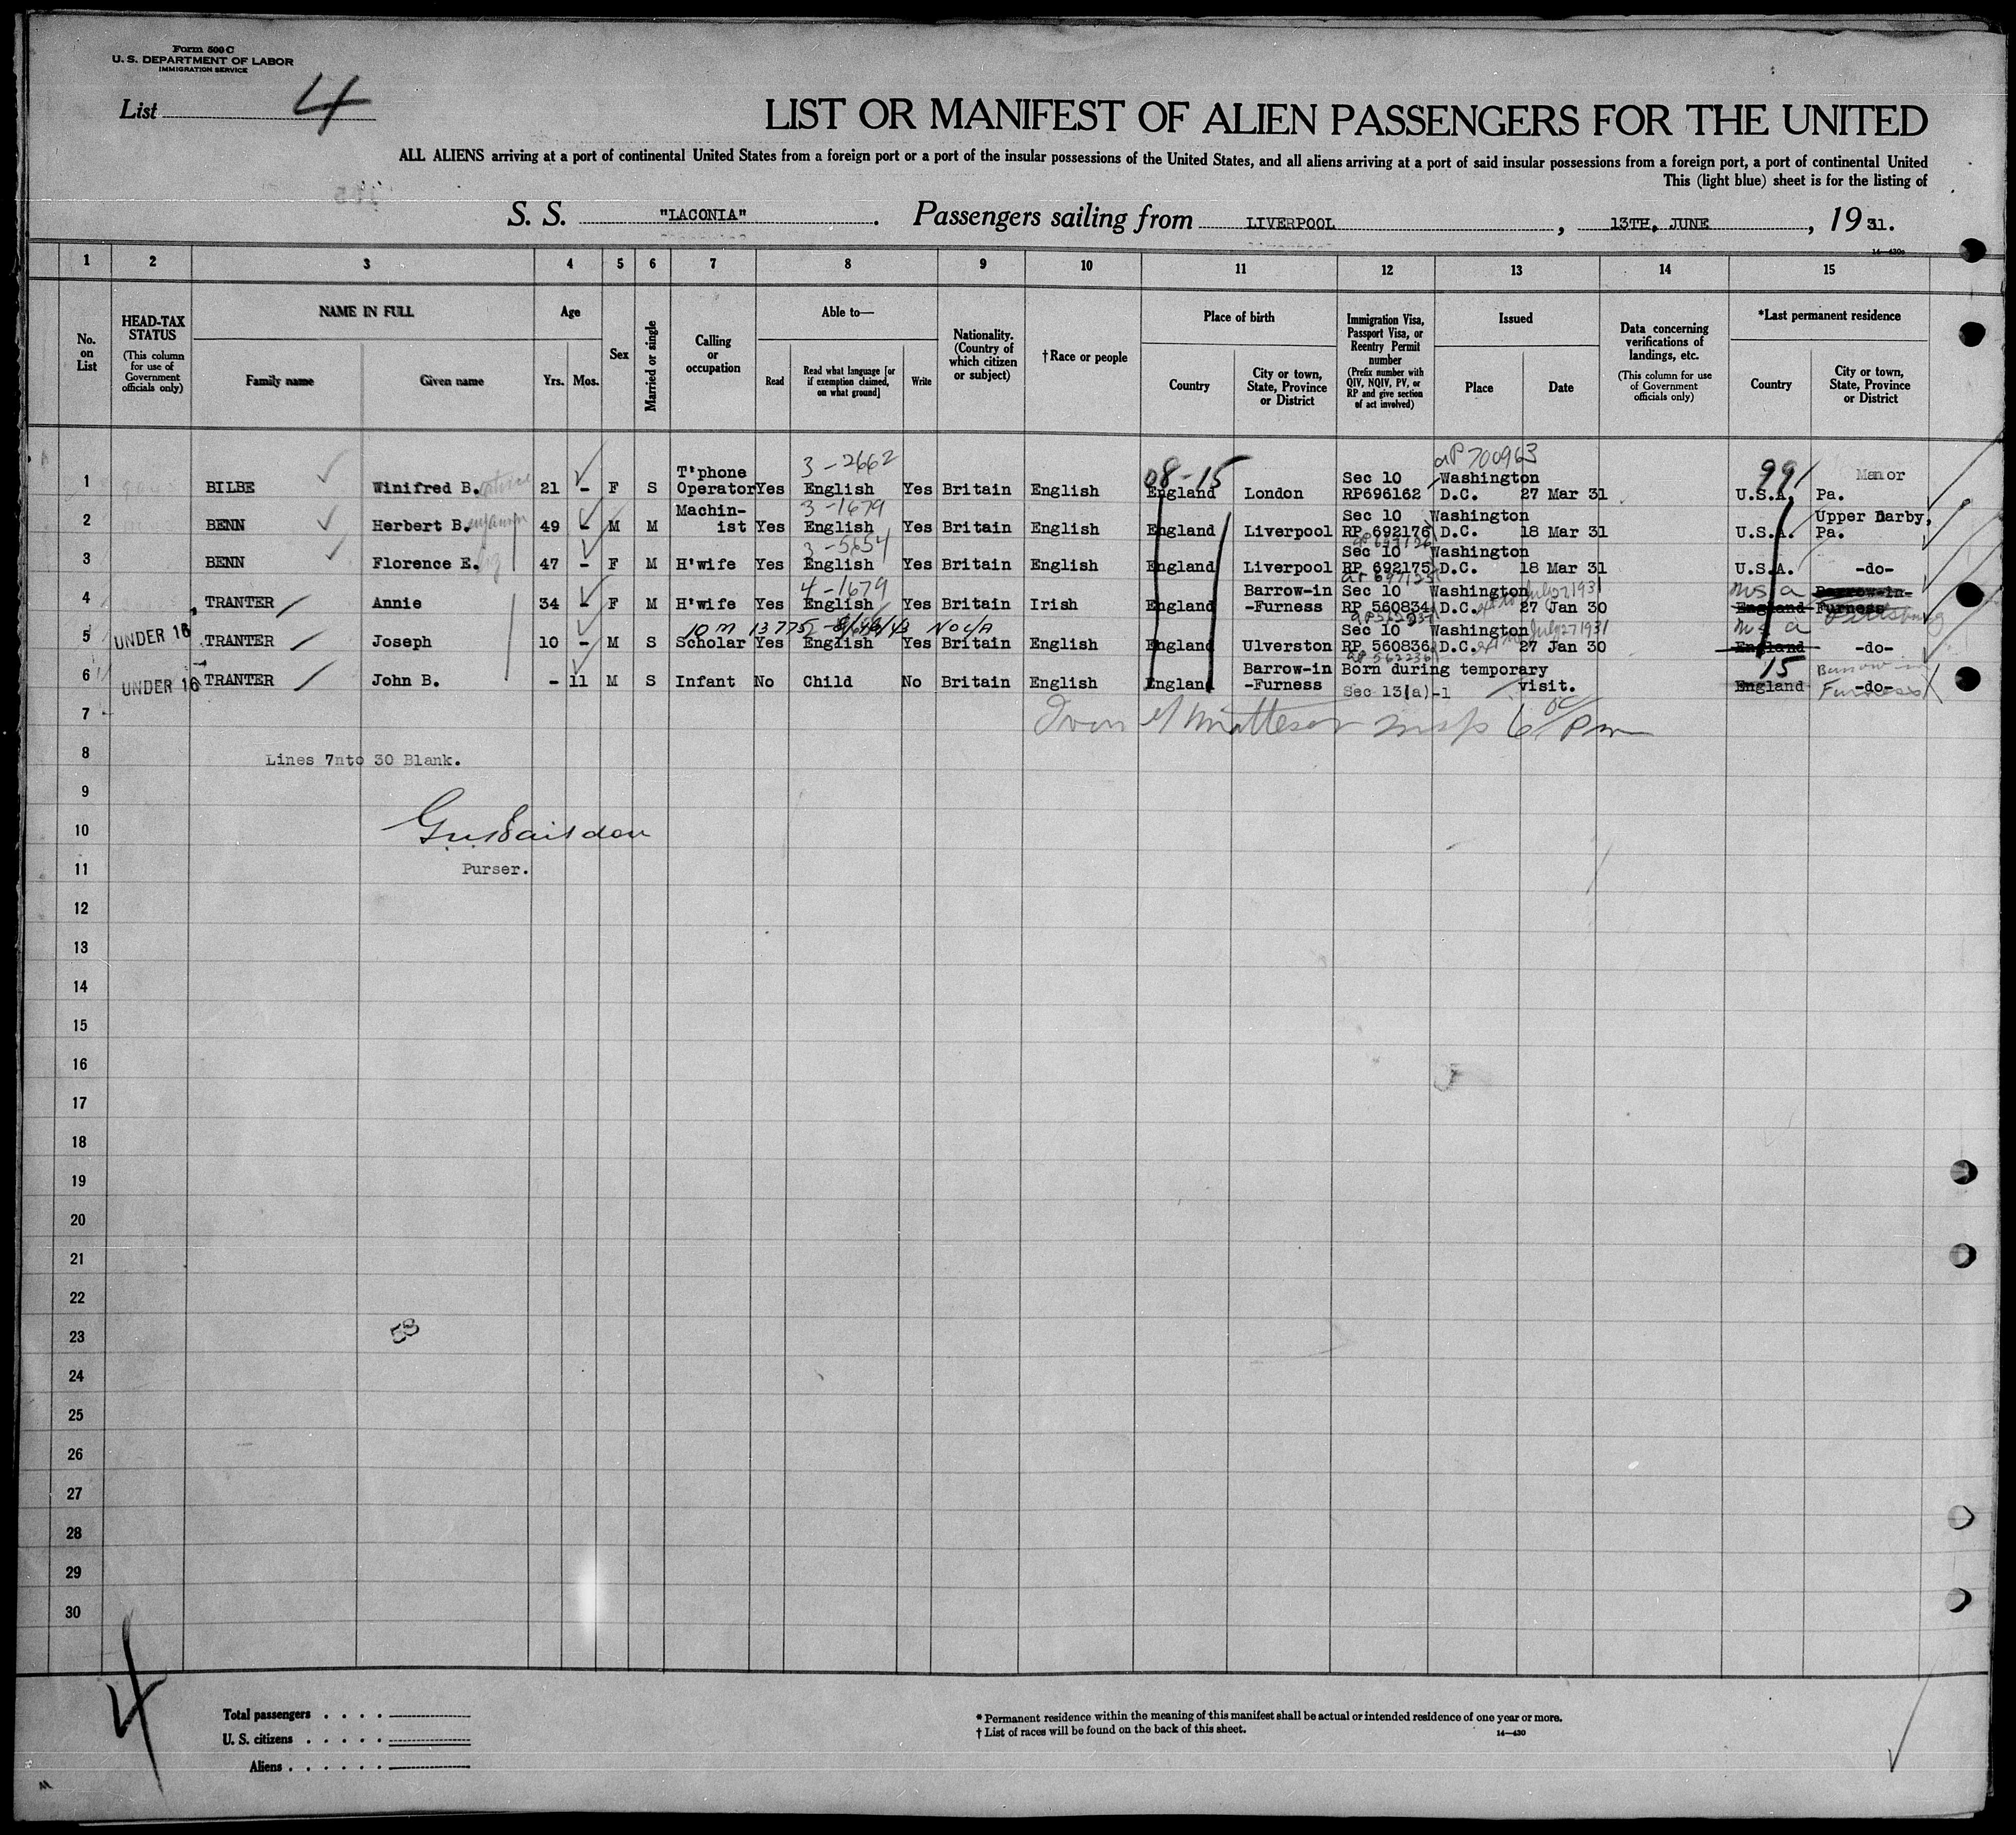 Form 500 C
U. S. DEPARTMENT OF LABOR
IMMIGRATION SERVICE
List 4
LIST OR MANIFEST OF ALIEN PASSENGERS FOR THE UNITED
ALL ALIENS arriving at a port of continental United States from a foreign port or a port of the insular possessions of the United States, and all aliens arriving at a port of said insular possessions from a foreign port, a port of continental United
This (light blue) sheet is for the listing of
S. S. "LACONIA". Passengers sailing from LIVERPOOL, 13TH, JUNE, 1931.
14—430a
1 2 3 4 5 6 7 8 9 10 11 12 13 14 15
No. on List
HEAD-TAX STATUS (This column for use of Government officials only)
NAME IN FULL
Family name Given name
Age
Yrs. Mos.
Sex
Married or single
Calling or occupation
Able to—
Read Read what language [or if exemption claimed, on what ground] Write
Nationality. (Country of which citizen or subject)
†Race or people
Place of birth
Country City or town, State, Province or District
Immigration Visa, Passport Visa, or Reentry Permit number (Prefix number with QIV, NQIV, PV, or RP and give section of act involved)
Issued
Place Date
Data concerning verifications of landings, etc. (This column for use of Government officials only)
*Last permanent residence
Country City or town, State, Province or District
3-2662 08-15 aP 700963 99
1 BILBE Winifred B. 21 - F S T'phone Operator Yes English Yes Britain English England London Sec 10 RP696162 Washington D.C. 27 Mar 31 U.S.A. Manor Pa.
3-1679
2 BENN Herbert B. 49 - M M Machin-ist Yes English Yes Britain English England Liverpool Sec 10 RP 692176 Washington D.C. 18 Mar 31 U.S.A. Upper Darby, Pa.
3-5654
3 BENN Florence E. 47 - F M H'wife Yes English Yes Britain English England Liverpool Sec 10 RP 692175 Washington D.C. 18 Mar 31 U.S.A. -do-
4-1679
4 TRANTER Annie 34 - F M H'wife Yes English Yes Britain Irish England Barrow-in-Furness Sec 10 RP 560834 Washington D.C. 27 Jan 30 England Barrow-in-Furness
5 UNDER 16 TRANTER Joseph 10 - M S Scholar Yes English Yes Britain English England Ulverston Sec 10 RP 560836 Washington D.C. 27 Jan 30 England -do-
15
6 UNDER 16 TRANTER John B. - 11 M S Infant No Child No Britain English England Barrow-in-Furness Born during temporary visit. Sec 13(a)-1 England -do-
7
8 Lines 7nto 30 Blank.
9
10
11 Purser.
12
13
14
15
16
17
18
19
20
21
22
23 58
24
25
26
27
28
29
30
4
Total passengers . . . .
U. S. citizens . . . . .
Aliens . . . . . .
* Permanent residence within the meaning of this manifest shall be actual or intended residence of one year or more.
† List of races will be found on the back of this sheet.
14—430